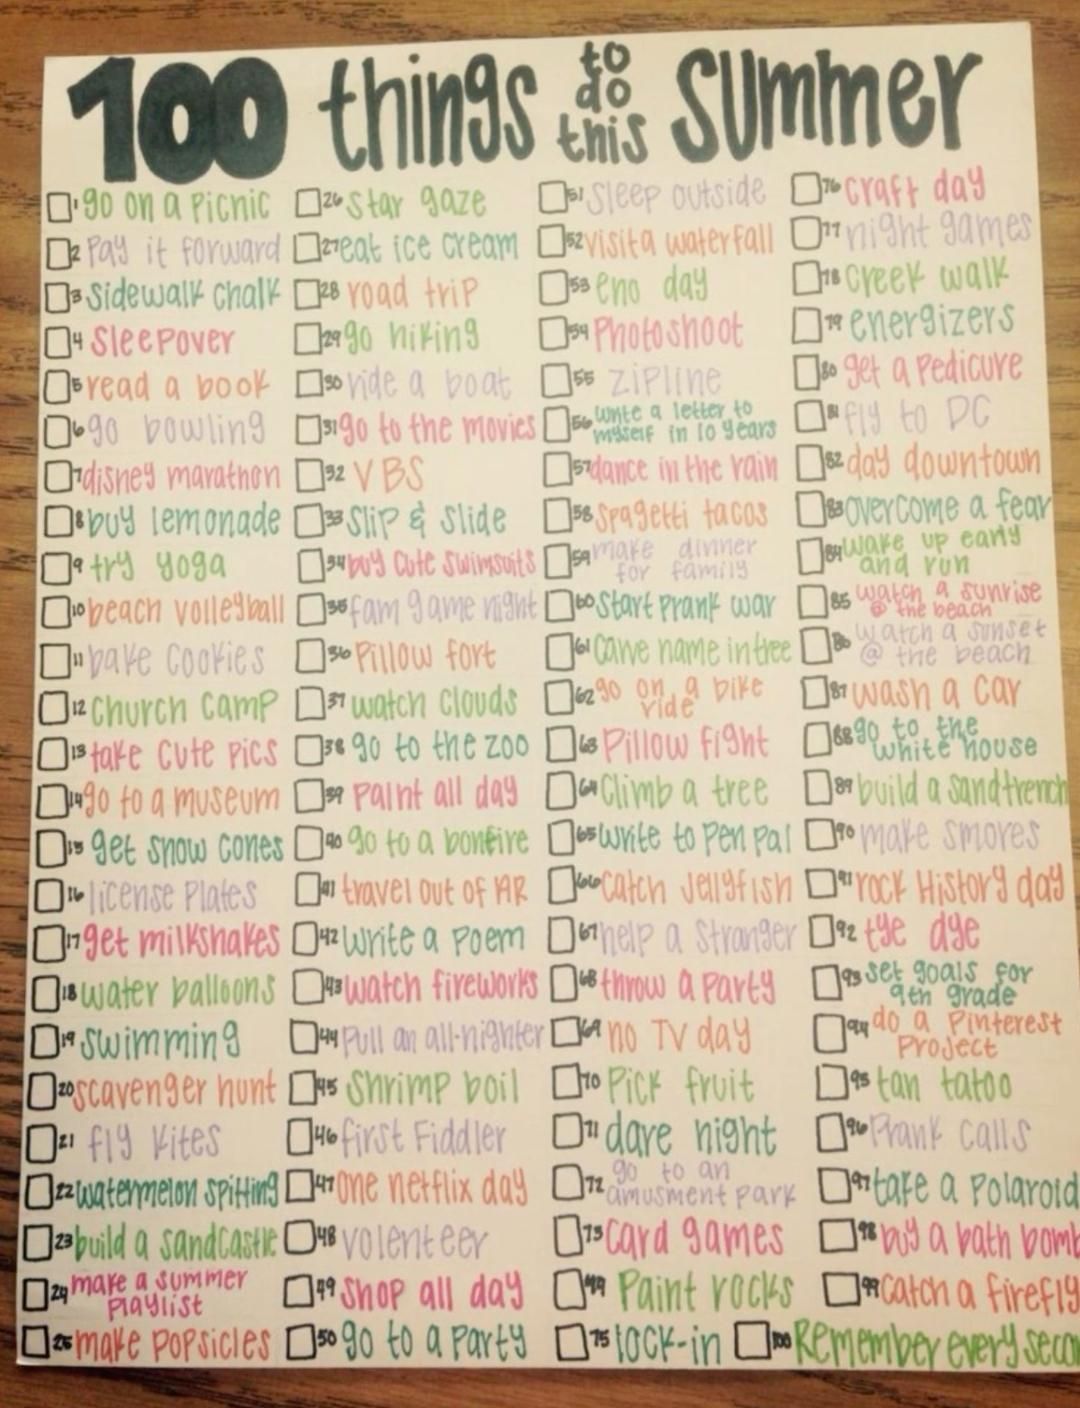 100 things to do this summer
1 go on a picnic
2 pay it forward
3 sidewalk chalk
4 sleepover
5 read a book
6 go bowling
7 disney marathon
8 buy lemonade
9 try yoga
10 beach volleyball
11 bake cookies
12 church camp
13 take cute pics
14 go to a museum
15 get snow cones
16 license plates
17 get milkshakes
18 water balloons
19 swimming
20 scavenger hunt
21 fly kites
22 watermelon spitting
23 build a sandcastle
24 make a summer
playlist
25 make popsicles
26 star gaze
27 eat ice cream
28 road trip
29 go hiking
30 ride a boat
31 go to the movies
32 VBS
33 slip & slide
34 buy cute swimsuits
35 fam game night
36 pillow fort
37 watch clouds
38 go to the zoo
39 paint all day
40 go to a bonfire
41 travel out of AR
42 write a poem
43 watch fireworks
44 pull an all-nighter
45 shrimp boil
46 first Fiddler
47 one netflix day
48 volenteer
49 shop all day
50 go to a party
51 sleep outside
52 visit a waterfall
53 eno day
54 photoshoot
55 zipline
56 write a letter to
myself in 10 years
57 dance in the rain
58 spagetti tacos
59 make dinner
for family
60 start prank war
61 carve name in tree
62 go on a bike
ride
63 pillow fight
64 climb a tree
65 write to pen pal
66 catch jellyfish
67 help a stranger
68 throw a party
69 no TV day
70 pick fruit
71 dare night
72 go to an
amusment park
73 card games
74 paint rocks
75 lock-in
76 craft day
77 night games
78 creek walk
79 energizers
80 get a pedicure
81 fly to DC
82 day downtown
83 overcome a fear
84 wake up early
and run
85 watch a sunrise
@ the beach
86 watch a sunset
@ the beach
87 wash a car
88 go to the
white house
89 build a sandtrench
90 make smores
91 rock History day
92 tye dye
93 set goals for
9th grade
94 do a pinterest
project
95 tan tatoo
96 prank calls
97 take a polaroid
98 buy a bath bomb
99 catch a firefly
100 Remember every seco